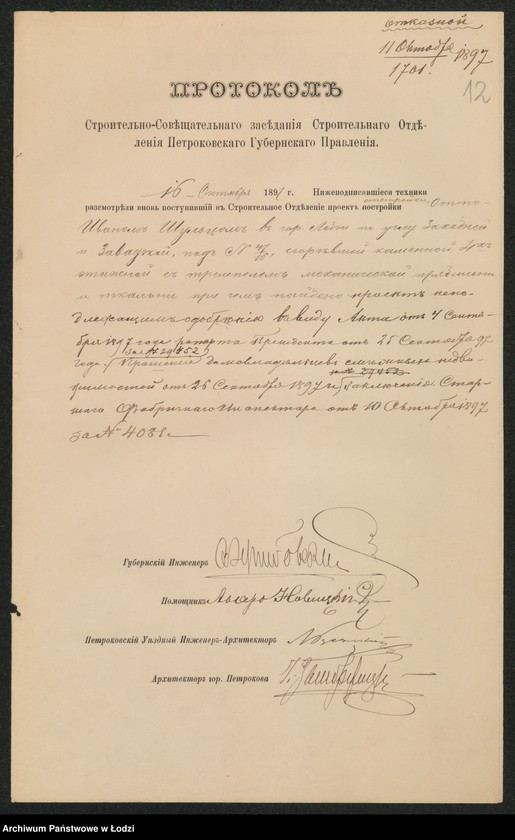 отказной
11 Октября 1897
1701.
12
ПРОТОКОЛЪ
Строительно-Совѣщательнаго засѣданія Строительнаго Отдѣ-
ленія Петроковскаго Губернскаго Правленія.
16 Октября 1897 г. Нижеподписавшіеся техники
разсмотрѣли вновь поступившій въ Строительное Отдѣленіе проектъ постройки Отто-
Иваномъ Шульцомъ въ гор. Лодзи по углу Западной
и Завадзкой, подъ № сгорѣвшей каменной 4хъ
этажной съ механической прядильни
и ткальни при чемъ найдено проектъ непо-
длежащимъ одобренію въ виду Акта отъ 4 Сентя-
бря 1897 года рапорта Президента отъ 25 Сентября 97
года за № 29452 Прошенія домовладѣльцевъ смежныхъ недви-
жимостей отъ 26 Сентября 1897 г. и заключенія Стар-
шаго Фабричнаго Инспектора отъ 10 Октября 1897
за № 4081
Губернскій Инженеръ
Помощникъ
Петроковскій Уѣздный Инженеръ-Архитекторъ
Архитекторъ гор. Петрокова
Archiwum Państwowe w Łodzi